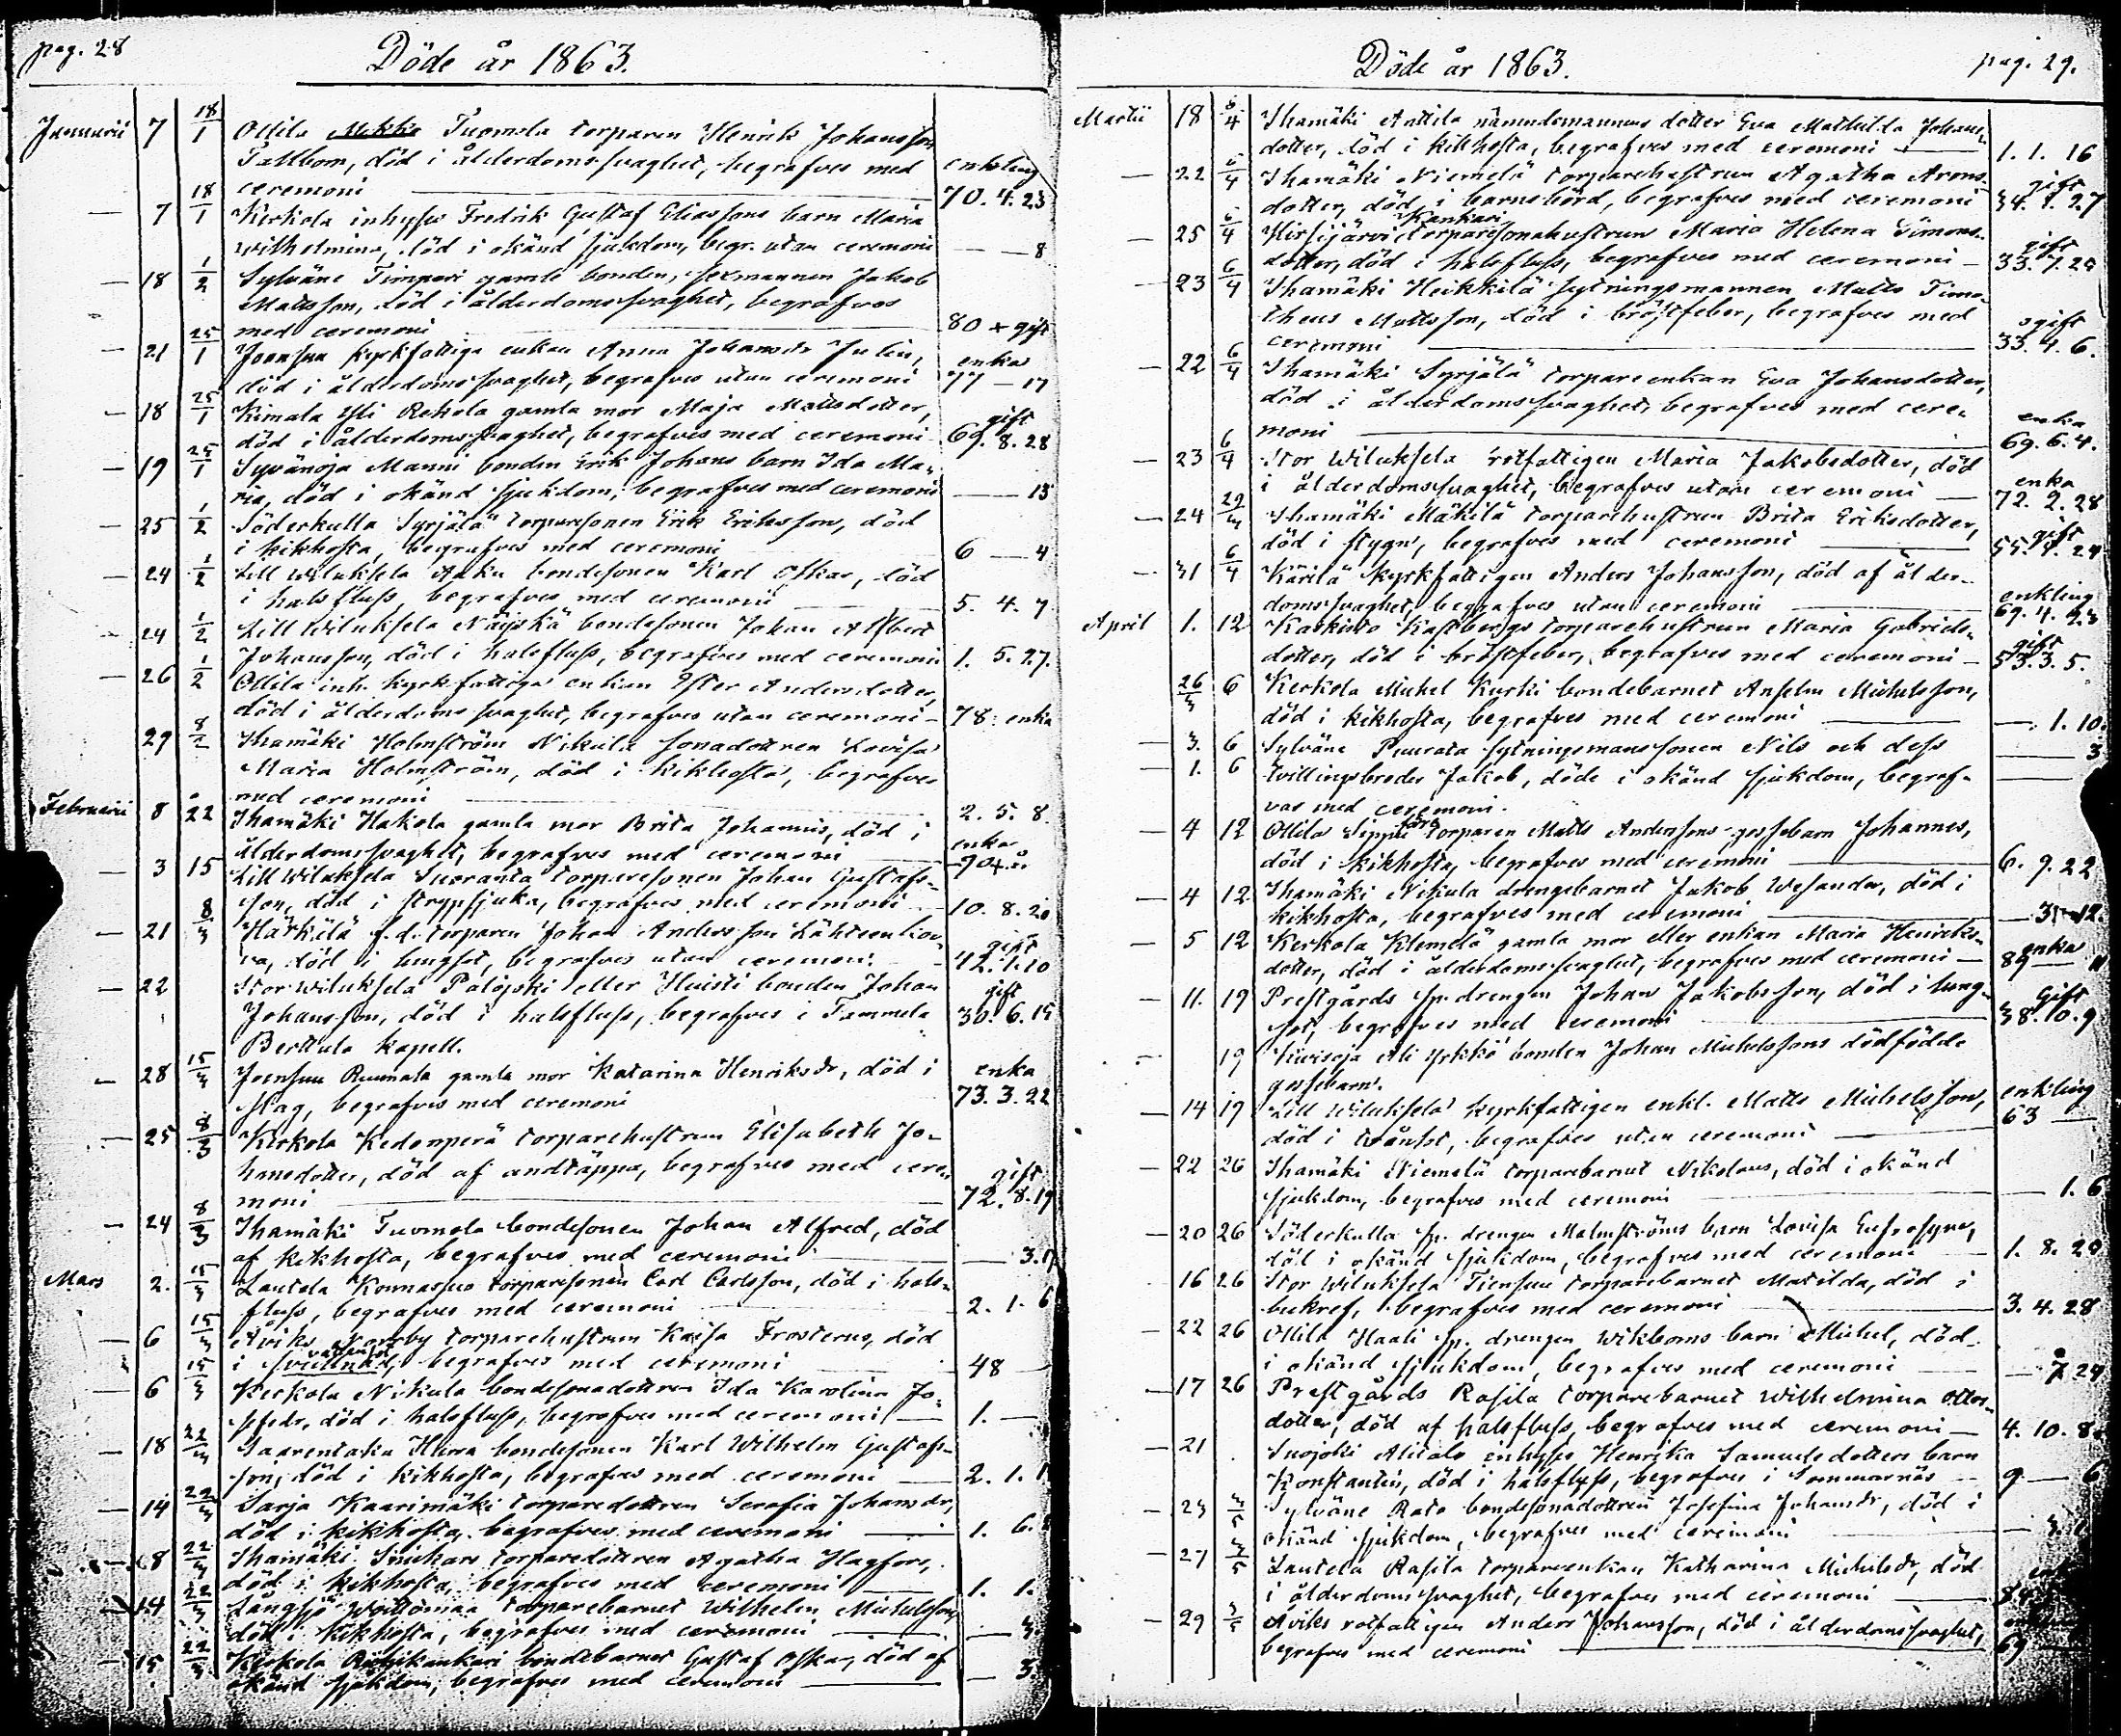 pag. 28
Döde år 1863.
Januarii 7 18/1 Ollila Mikko Tuomola torparen Henrik Johansson
Tallbom, död i ålderdomssvaghet, begrafves med enkling
ceremoni 70. 4. 23
— 7 18/1 Kerkola inhyses Fredrik Gustaf Eliassons barn Maria
Wilhelmina, död i okänd sjukdom, begr. utan ceremoni — 8
— 18 1/2 Sylväne Timperi gamle bonden, sexmannen Jakob
Mattsson, död i ålderdomssvaghet, begrafves
med ceremoni 80 + gift
— 21 25/1 Joensuu kyrkfattiga enkan Anna Johansdr Julin, enka
död i ålderdomssvaghet, begrafves utan ceremoni 77 — 17
— 18 25/1 Kimala Yli Rehola gamla mor Maja Mattsdotter, gift
död i ålderdomssvaghet, begrafves med ceremoni 69. 8. 28
— 19 25/1 Syvänoja Manni bonden Erik Johans barn Ida Ma-
ria, död i okänd sjukdom, begrafves med ceremoni — 13
— 25 1/2 Söderkulla Syrjälä torparesonen Erik Eriksson, död
i kikhosta, begrafves med ceremoni 6 — 4
— 24 1/2 Lill Wiluksela Anku bondesonen Karl Oskar, död
i halsfluss, begrafves med ceremoni 5. 4. 7
— 24 1/2 Lill Wiluksela Näijskä bondesonen Johan Albert
Johansson, död i halsfluss, begrafves med ceremoni 1. 5. 27.
— 26 1/2 Ollila inh. kyrkfattiga enkan Ester Andersdotter,
död i ålderdomssvaghet, begrafves utan ceremoni — 78. enka
29 8/2 Ihamäki Holmström Nikula sonadottren Lovisa
Maria Holmström, död i kikhosta, begrafves
med ceremoni 2. 5. 8.
Februarii 8 22 Ihamäki Hakola gamla mor Brita Johannis, död i enka
ålderdomssvaghet, begrafves med ceremoni
— 3 15 Lill Wiluksela Suoranta torparesonen Johan Gustafs-
son, död i strypsjuka, begrafves med ceremoni 10. 8. 20
— 21 8/3 Härkälä f. d. torparen Johan Andersson Lähteenkor-
va, död i lungsot, begrafves utan ceremoni gift 42. 1. 10
— 22 Stor Wiluksela Palojoki eller Huisti bonden Johan gift
Johansson, död i halsfluss, begrafves i Tammela 30. 6. 15
Berttula kapell.
— 28 15/3 Joensuu Ruunala gamla mor Katarina Henriksdr, död i enka
slag, begrafves med ceremoni 73. 3. 22
— 25 8/3 Kerkola Kedonperä torparehustrun Elisabeth Jo-
hansdotter, död af andtäppa, begrafves med cere- gift
moni 72. 8. 19
— 24 8/3 Ihamäki Tuomola bondesonen Johan Alfred, död
af kikhosta, begrafves med ceremoni — 3.
Mars 2. 15/3 Lautela Konnassuo torparesonen Carl Carlsson, död i hals-
fluss, begrafves med ceremoni 2. 1. 6
— 6 15/3 Aviks Norrby torparehustrun Kaisa Frosterus, död
i begrafves med ceremoni 48 —
— 6 15/3 Kerkola Nikula bondesonadottren Ida Karolina Jo-
sefsdr, död i halsfluss, begrafves med ceremoni 1. —
— 18 22/3 Saarentaka Hurra bondesonen Karl Wilhelm Gustafs-
son, död i kikhosta, begrafves med ceremoni 2. 1.
— 14 22/3 Sarja Kaarimäki torparedottren Serafia Johansdr,
död i kikhosta, begrafves med ceremoni 1. 6.
— 8 22/3 Ihamäki Snickars torparedottren Agatha Hagfors,
död i kikhosta, begrafves med ceremoni 1. 1.
— 14 22/3 Långsjö Woittomaa torparebarnet Wilhelm Michelsson,
död i kikhosta, begrafves med ceremoni — 3.
— 15 22/3 Kerkola bondebarnet Gustaf Oskar, död af
okänd sjukdom, begrafves med ceremoni — 3.
Döde år 1863.
pag. 29.
Martii 18 6/4 Ihamäki Anttila nämndemannens dotter Eva Mathilda Johans-
dotter, död i kikhosta, begrafves med ceremoni 1. 1. 16
— 22 6/4 Ihamäki Niemelä torparehustrun Agatha Arons- gift
dotter, död i barnsbörd, begrafves med ceremoni 34. 1. 27
Kankari
— 25 6/4 Hirsijärvi torparesonahustrun Maria Helena Simons- gift
dotter, död i halsfluss, begrafves med ceremoni — 33. 7. 25
— 23 6/4 Ihamäki Heikkilä sytningsmannen Matts Timo-
theus Mattsson, död i bröstfeber, begrafves med ogift
ceremoni 33. 4. 6.
— 22 6/4 Ihamäki Syrjälä torpareenkan Eva Johansdotter,
död i ålderdomssvaghet, begrafves med cere- enka
moni 69. 6. 4.
— 23 6/4 Stor Wiluksela rotfattigen Maria Jakobsdotter, död enka
i ålderdomssvaghet, begrafves utan ceremoni — 72. 2. 28
— 24 29/3 Ihamäki Mäkilä torparehustrun Brita Eriksdotter, gift
död i stygn, begrafves med ceremoni 55. 1. 24
— 31 6/4 Kärilä kyrkfattigen Anders Johansson, död af ålder- enkling
domssvaghet, begrafves utan ceremoni 69. 4. 23
April 1. 12 Karkisto Kastbergs torparehustrun Maria Gabriels- gift
dotter, död i bröstfeber, begrafves med ceremoni — 53. 3. 5.
26/3 6 Kerkola Mickel Kurki bondebarnet Anselm Michelsson,
död i kikhosta, begrafves med ceremoni — 1. 10.
— 3. 6 Sylväne Puurata sytningsmanssonen Nils och dess — 3
— 1. 6 tvillingsbroder Jakob, döde i okänd sjukdom, begraf-
vas med ceremoni.
— 4 12 Ollila Sippili torparen Matts Anderssons gossebarn Johannes,
död i kikhosta, begrafves med ceremoni 6. 9. 22
— 4 12 Ihamäki Nikula drengebarnet Jakob Wesander, död i
kikhosta, begrafves med ceremoni — 3 — 12.
— 5 12 Kerkola Klemelä gamla mor eller enkan Maria Henriks- enka
dotter, död i ålderdomssvaghet, begrafves med ceremoni — 89 — 11
— 11. 19 Prestgårds sp. drengen Johan Jakobsson, död i lung- Gift
sot, begrafves med ceremoni 38. 10. 9
— 19 Kivisoja Ali Yrkkö bonden Johan Michelssons dödfödde
gossebarn.
— 14 19 Lill Wiluksela kyrkfattigen enkl. Matts Michelsson, enkling
död i tvånsot, begrafves utan ceremoni — 63 —
— 22 26 Ihamäki Niemelä torparebarnet Nikolaus, död i okänd
sjukdom, begrafves med ceremoni — 1. 6
— 20 26 Söderkulla sp. drengen Malmströms barn Lovisa Eufrosyne,
död i okänd sjukdom, begrafves med ceremoni 1. 8. 20
16 26 Stor Wiluksela Tiensuu torparebarnet Matilda, död i
bukref, begrafves med ceremoni 3. 4. 28
— 22 26 Ollila Haali sp. drengen Wikboms barn Michel, död
i okänd sjukdom, begrafves med ceremoni — 7 24
— 17 26 Prestgårds Rasila torparebarnet Wilhelmina Ottos-
dotter, död af halsfluss, begrafves med ceremoni — 4. 10. 8.
— 21 Suojoki Alitalo inhyses Henrika Samuelsdotters barn
Konstantin, död i halsfluss, begrafves i Sommarnäs — 9. — 6
— 23 3/5 Sylväne Rato bondesonadottren Josefina Johansdr, död i
okänd sjukdom, begrafves med ceremoni
— 27 3/5 Lautela Rasila torpareenkan Katharina Michelsdr, död
i ålderdomssvaghet, begrafves med ceremoni
— 29 3/5 Aviks rotfattigen Anders Johansson, död i ålderdomssvaghet,
begrafves med ceremoni 69